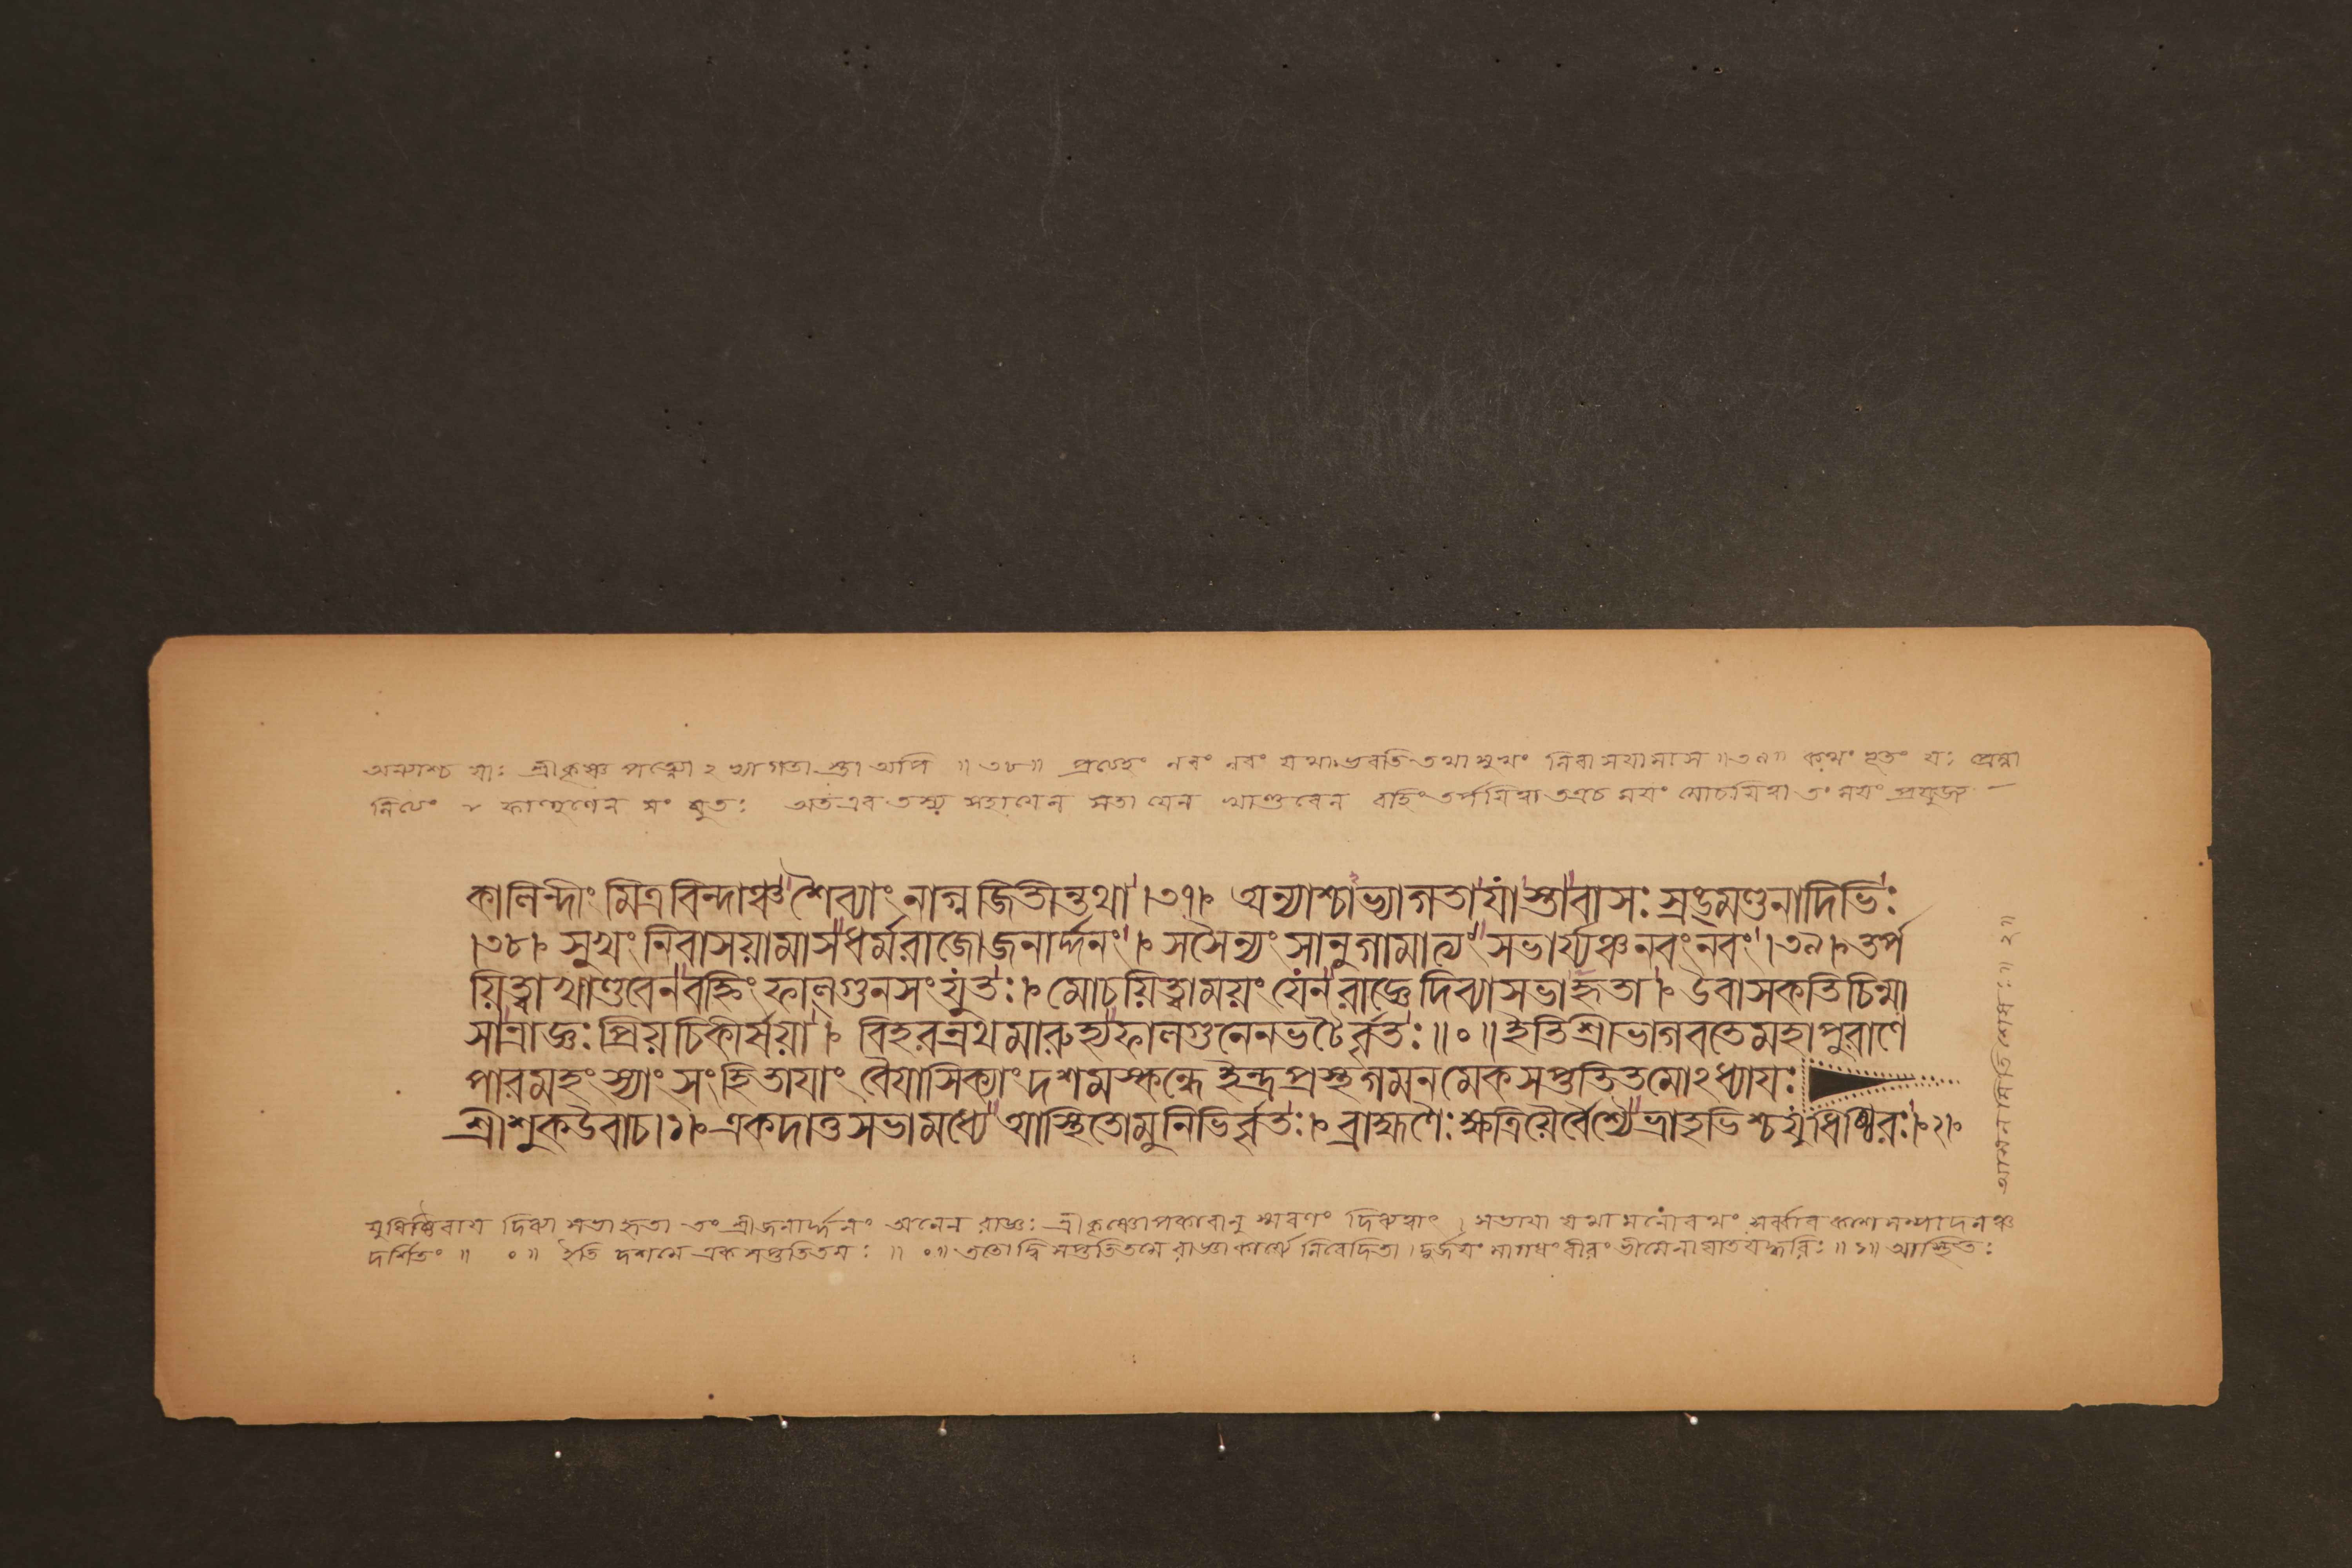 অন্যাশ্চ যাঃ শ্রীকৃষ্ণ পত্ন্যো২ভ্যাগতা স্তা অপি ॥৩৮॥ প্রত্যহং নবং নবং যথা ভবতি তথা সুখং নিবাসযামাস ॥৩৯॥ কথং
ফাল্গুনেন সং যুতঃ অতএব তস্য সহাযেন খাণ্ডবেন বহ্নিং তর্পযিত্বা তত্রচ মযং মোচযিত্বা তং মযং
কালিন্দীং মিত্রবিন্দাঞ্চ শৈব্যাং নাগ্নজিতীন্তথা ।৩৭। অন্যাশ্চাভ্যাগতা যাস্তাবাসঃ স্রঙ্মণ্ডনাদিভিঃ
।৩৮। সুখং নিবাসয়ামাস ধর্ম্মরাজো জনার্দ্দনং । সসৈন্যং সানুগামাত্যং সভার্য্যঞ্চ নবং নবং ।৩৯। তর্প
য়িত্বা খাণ্ডবেন বহ্নিং ফাল্গুনসংযুতঃ । মোচয়িত্বা ময়ং যেন রাজ্ঞে দিব্যা সভা হৃতা । উবাস কতিচিন্মা
সান্রাজ্ঞঃ প্রিয়চিকীর্ষয়া । বিহরন্রথমারুহ্য ফাল্গুনেন ভটৈর্বৃতঃ ॥০॥ ইতি শ্রীভাগবতে মহাপুরাণে
পারমহংস্যাং সংহিতাযাং বৈযাসিক্যাং দশমস্কন্ধে ইন্দ্রপ্রস্থগমনমেকসপ্ততিতমো২ধ্যাযঃ
শ্রীশুক উবাচ ।১। একদা তু সভামধ্যে আস্থিতো মুনিভির্বৃতঃ । ব্রাহ্মণৈঃ ক্ষত্রিয়ৈর্বৈশ্যৈর্ভ্রাতৃভিশ্চ যুধিষ্ঠিরঃ ।২।
যুধিষ্ঠিরায দিব্যা সভা হৃতা তং শ্রীজনার্দ্দনং অনেন রাজ্ঞঃ শ্রীকৃষ্ণোপকারানু স্মরণং
দর্শিতং ॥ ০ ॥ ইতি দশমে এক সপ্ততিতমঃ ॥ ০ ॥ ততো দ্বি সপ্ততিতমে রাজ্ঞা কার্য্যে নিবেদিতা । দুর্জযং মাগধং বীরং ভীমেনাঘাতযদ্ধরিঃ ॥১॥ আস্থিতঃ